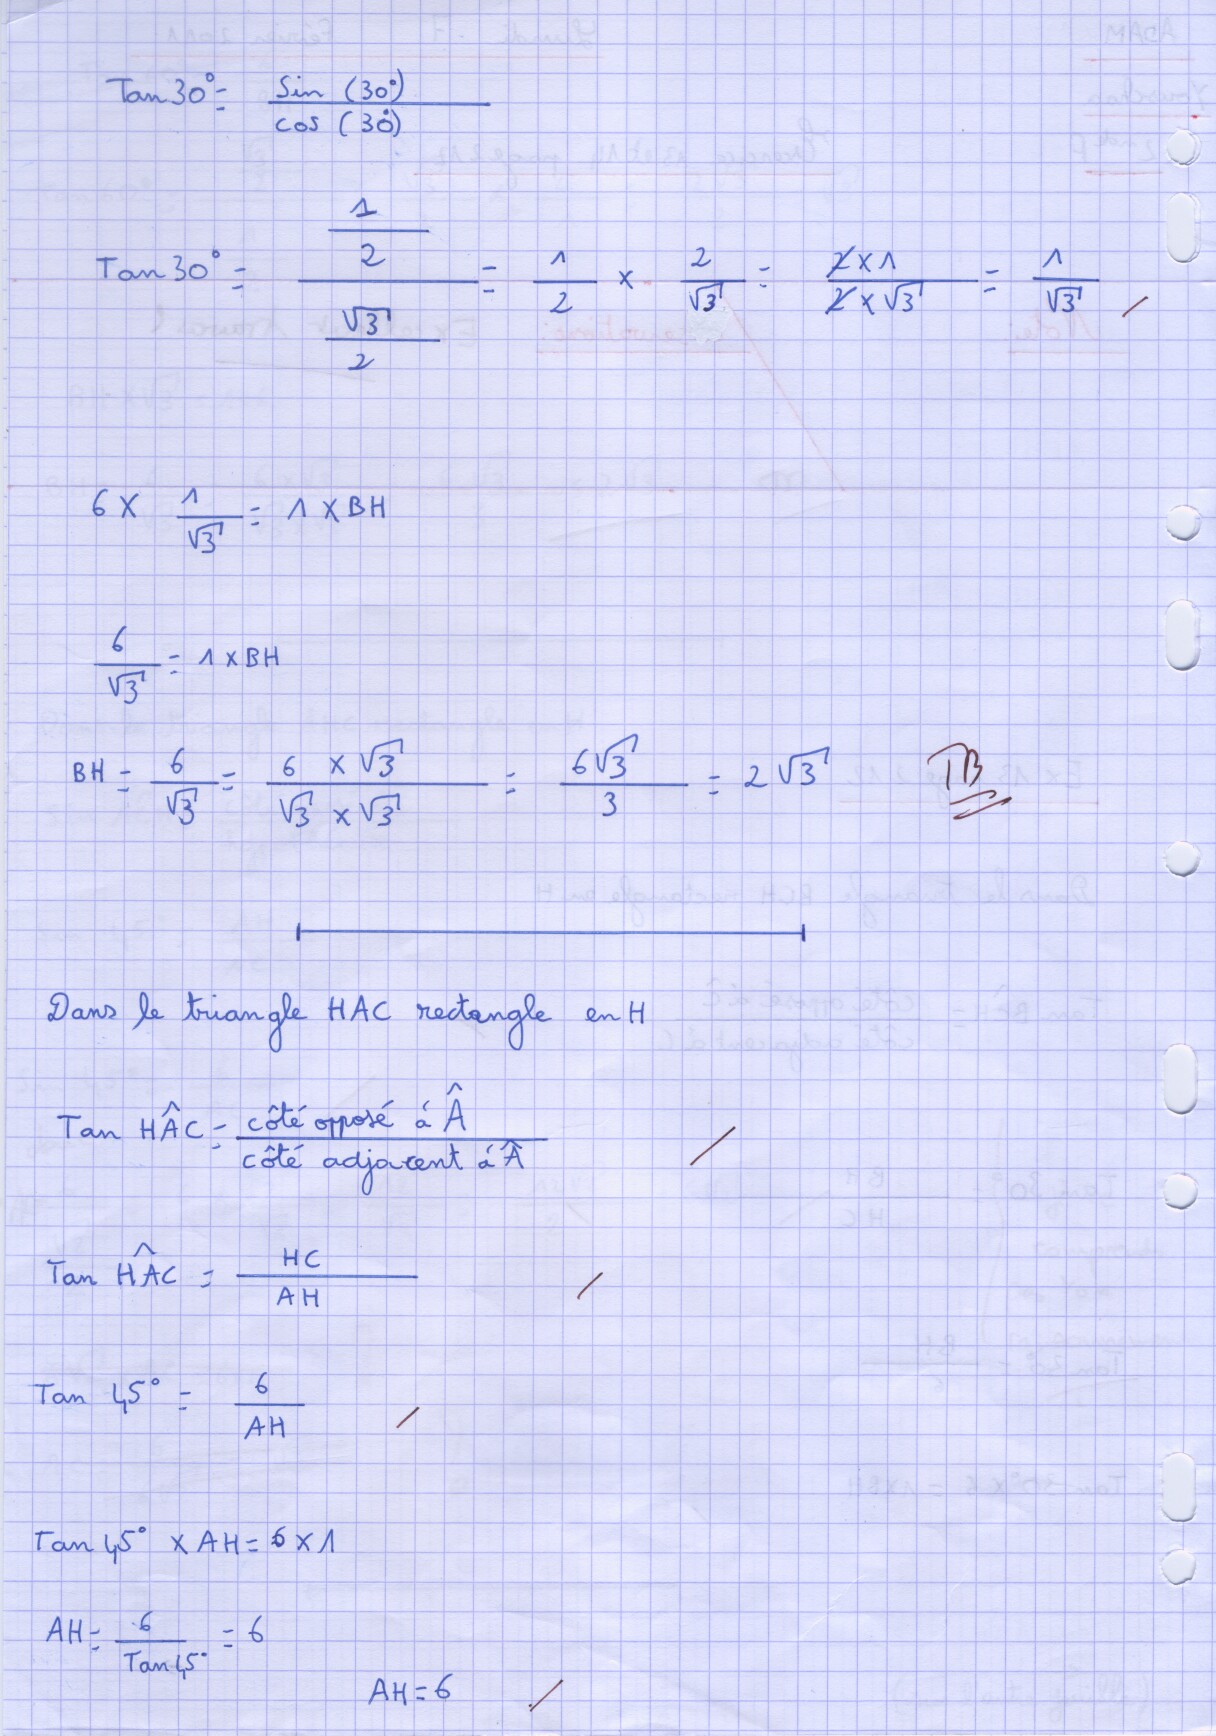 Tan 30° = Sin (30°) / cos (30°)
Tan 30° = (1/2) / (√3/2) = 1/2 × 2/√3 = 2 × 1 / 2 × √3 = 1/√3
6 × 1/√3 = 1 × BH
6/√3 = 1 × BH
BH = 6/√3 = 6 × √3 / √3 × √3 = 6√3 / 3 = 2√3 TB
Dans le triangle HAC rectangle en H
Tan HÂC = côté opposé á Â / côté adjacent á Â
Tan HÂC = HC / AH
Tan 45° = 6 / AH
Tan 45° × AH = 6 × 1
AH = 6 / Tan 45° = 6
AH = 6